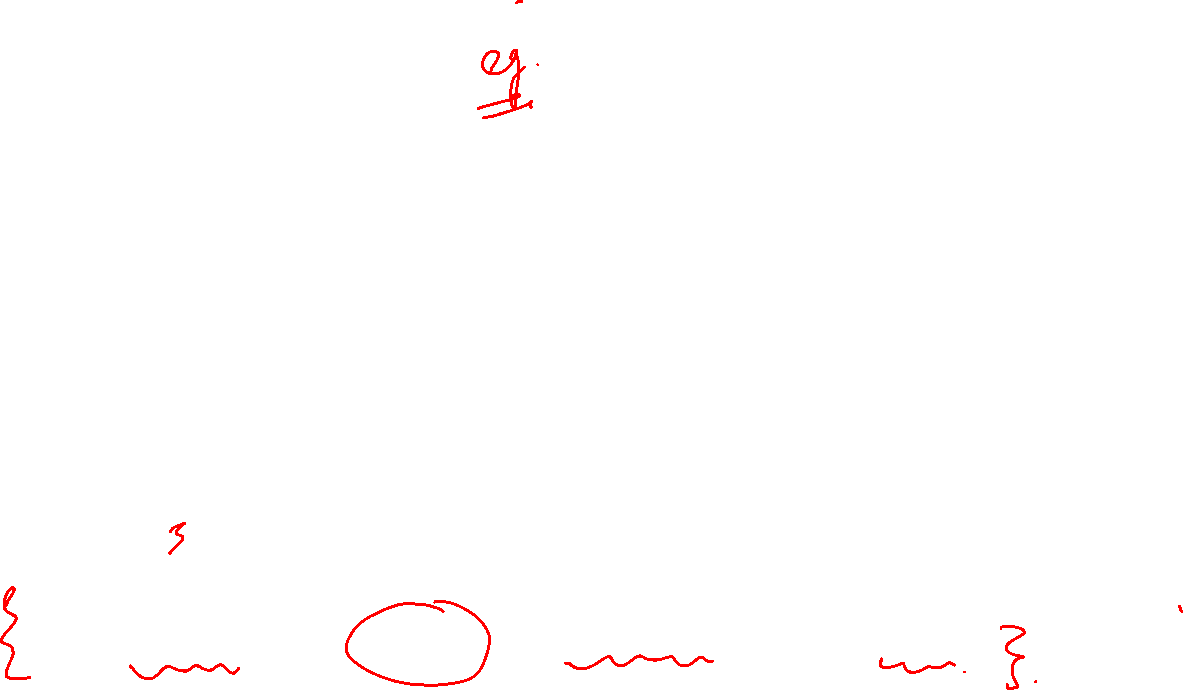 eg.
3
{ }.